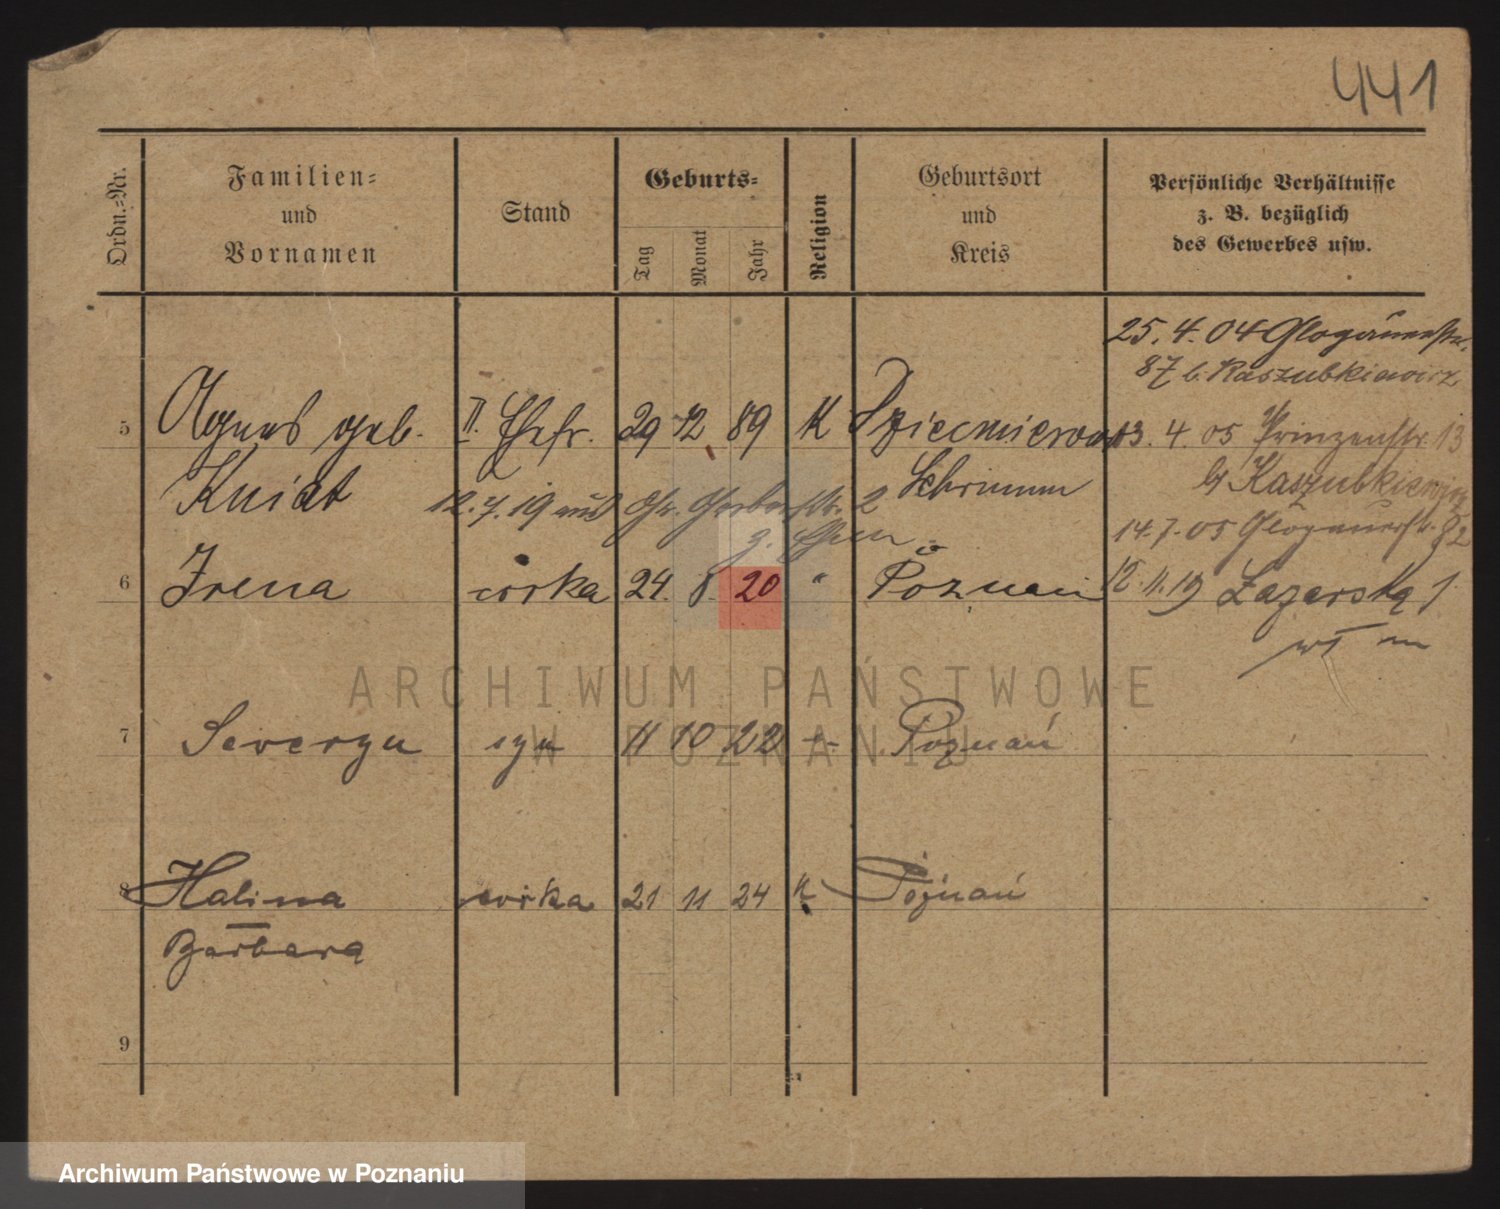 441
Ordn.-Nr.
Familien-
und
Vornamen
Stand
Geburts-
Tag
Monat
Jahr
Religion
Geburtsort
und
Kreis
Persönliche Verhältnisse
z. B. bezüglich
des Gewerbes usw.
25. 4. 04 Glogauerstr.
87 b. Kaszubkiewicz
5 Agnes geb. II. Ehefr. 29 12 89 K 13. 4. 05 Prinzenstr. 13
Kniat Schrimm b/ Kaszubkiewicz
12. 7. 19 aus Gr. Gerberstr. 2
14. 7. 05 Glogauerstr. 82
6 Irena córka 24. 8. 20 " Poznań 12. 11. 19 Łazarska 1
7 Seweryn syn 11 10 22 Poznań
8 Halina córka 21 11 24 K Poznań
Barbara
9
ARCHIWUM PAŃSTWOWE
W POZNANIU
Archiwum Państwowe w Poznaniu